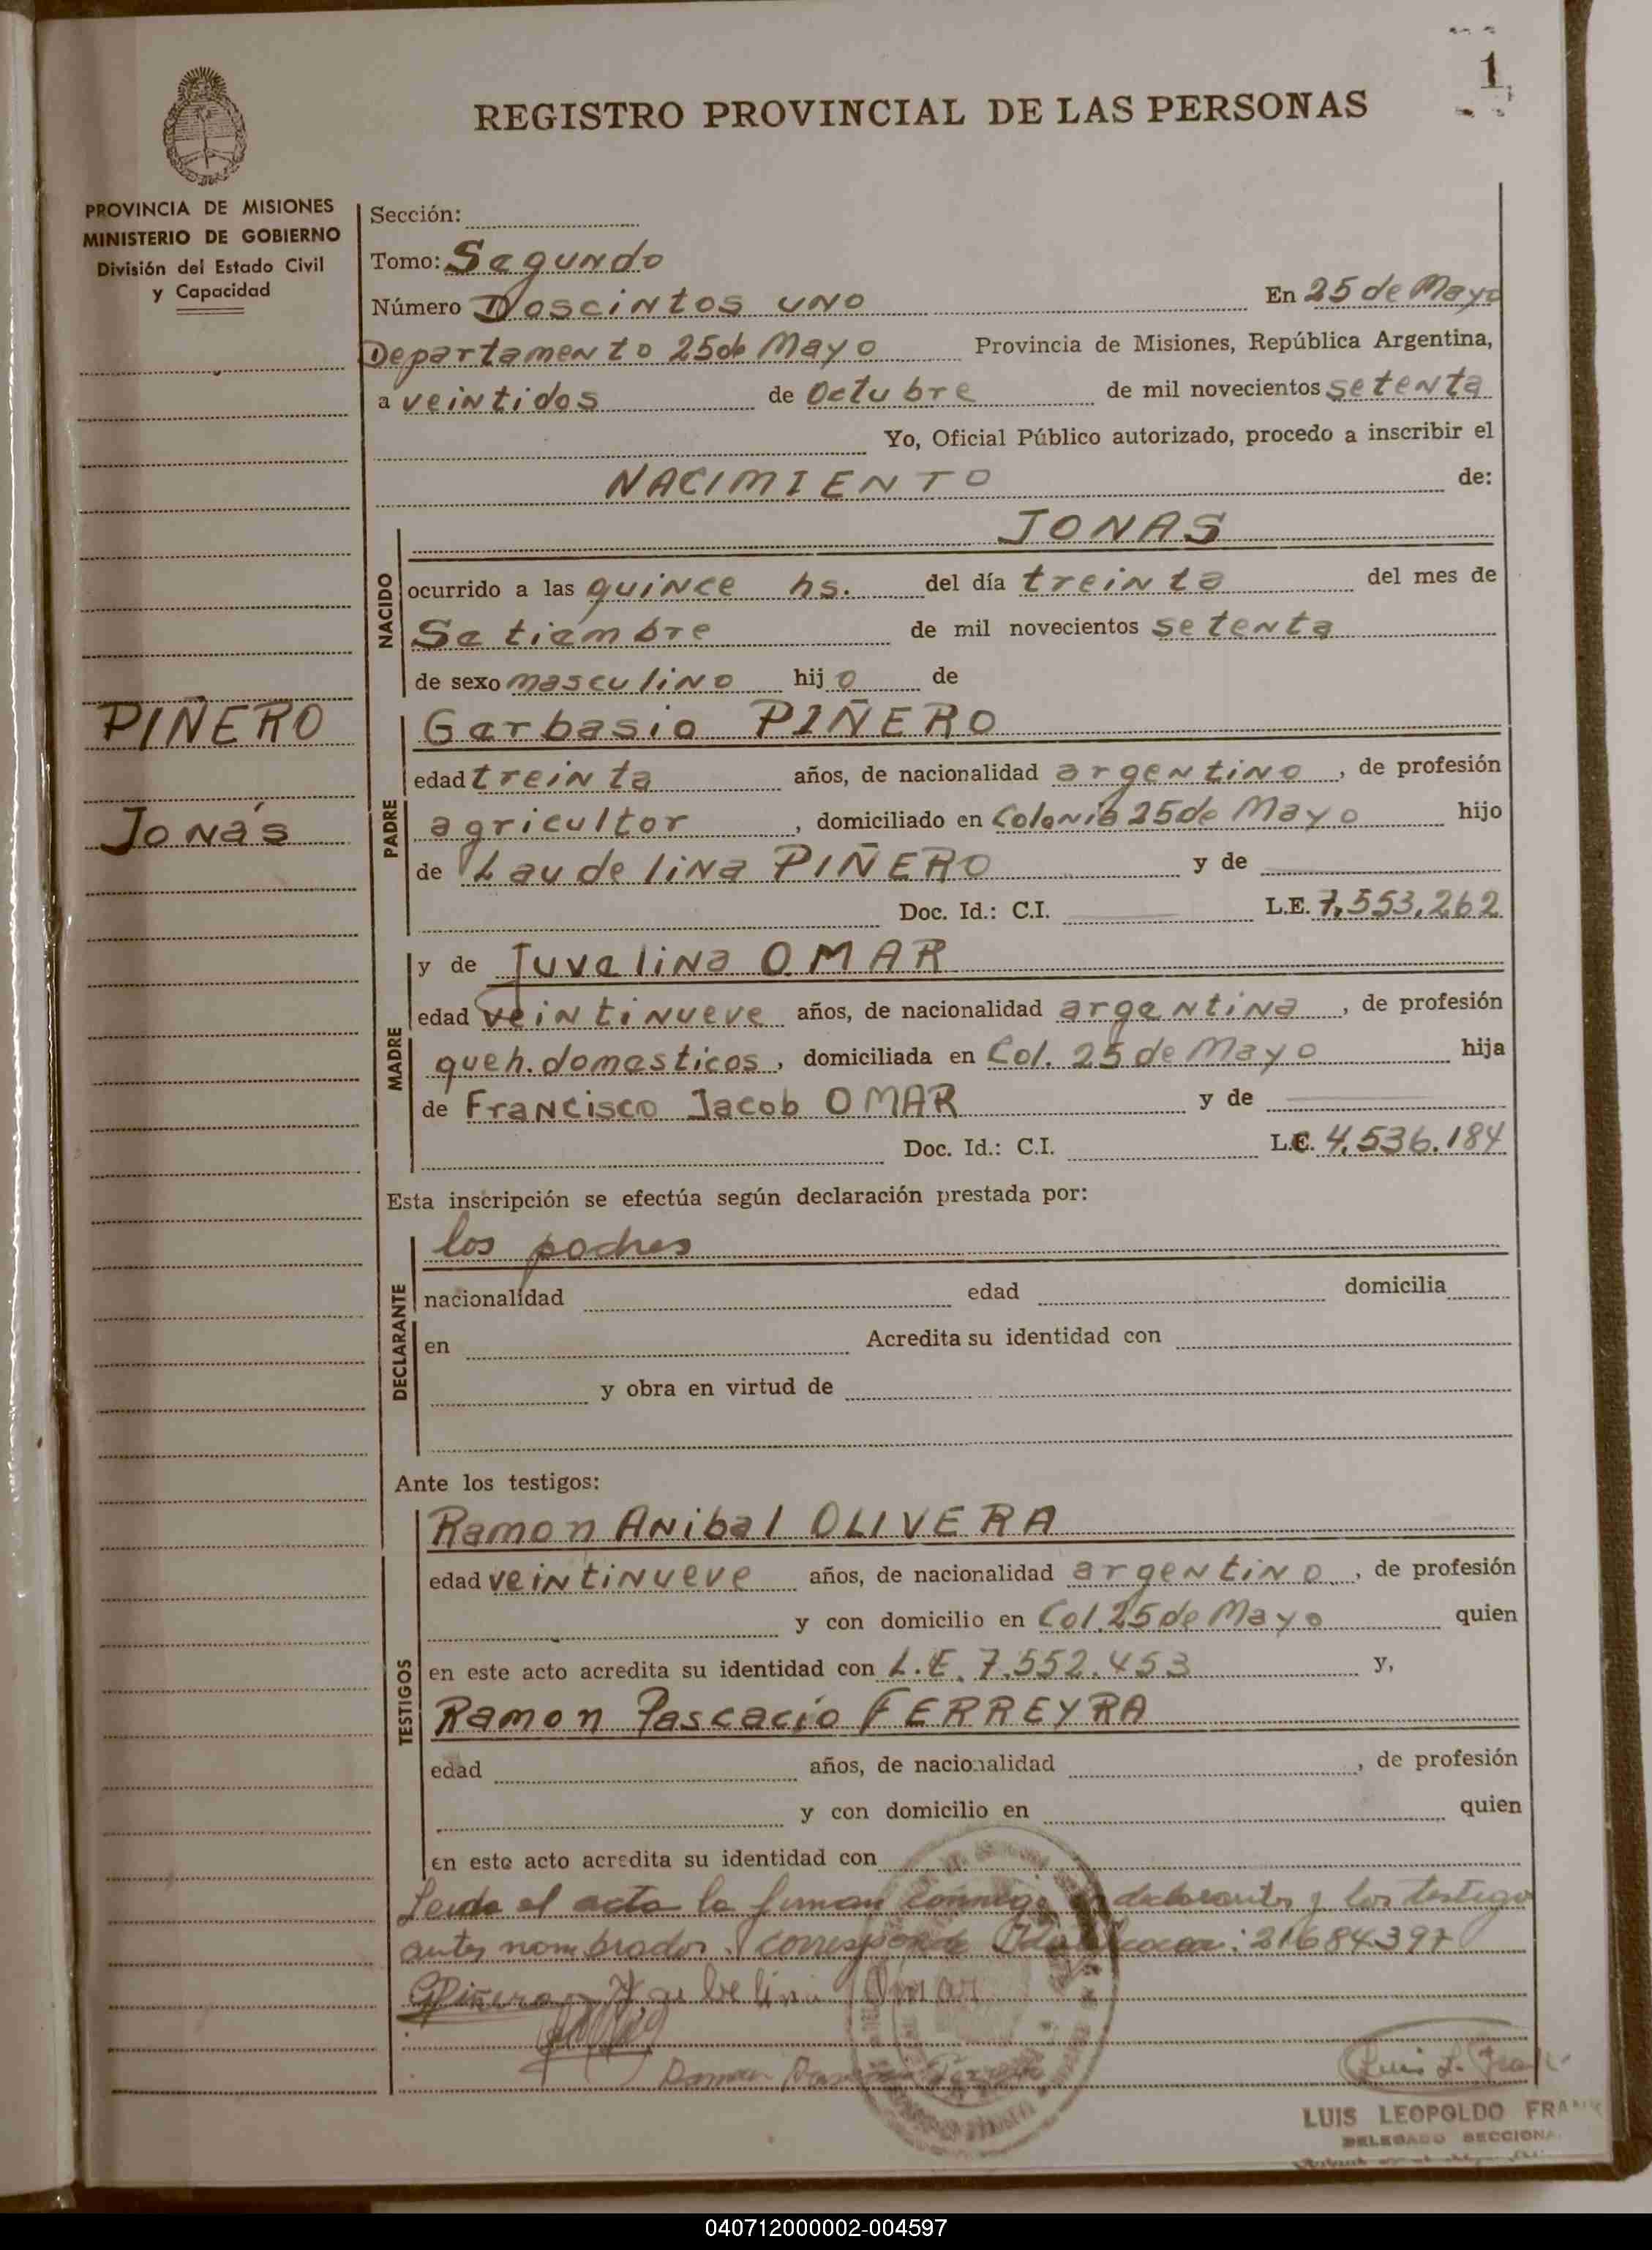 1
REGISTRO PROVINCIAL DE LAS PERSONAS
PROVINCIA DE MISIONES
MINISTERIO DE GOBIERNO
División del Estado Civil
y Capacidad
PIÑERO
Jonás
Sección:
Tomo: Segundo
Número Doscintos uno En 25 de Mayo
Departamento 25 de Mayo Provincia de Misiones, República Argentina,
a veintidos de Octubre de mil novecientos setenta
Yo, Oficial Público autorizado, procedo a inscribir el
NACIMIENTO de:
JONAS
NACIDO
ocurrido a las quince hs. del día treinta del mes de
Setiembre de mil novecientos setenta
de sexo masculino hijo de
PADRE
Gerbasio PIÑERO
edad treinta años, de nacionalidad argentino, de profesión
agricultor, domiciliado en Colonia 25 de Mayo hijo
de Laudelina PIÑERO y de
Doc. Id.: C.I. L.E. 7,553,262
MADRE
y de Juvelina OMAR
edad veintinueve años, de nacionalidad argentina, de profesión
queh. domesticos, domiciliada en Col. 25 de Mayo hija
de Francisco Jacob OMAR y de
Doc. Id.: C.I. L.C. 4.536.184
Esta inscripción se efectúa según declaración prestada por:
DECLARANTE
los padres
nacionalidad edad domicilia
en Acredita su identidad con
y obra en virtud de
Ante los testigos:
TESTIGOS
Ramon Anibal OLIVERA
edad veintinueve años, de nacionalidad argentino, de profesión
y con domicilio en Col. 25 de Mayo quien
en este acto acredita su identidad con L.E. 7.552.453 y,
Ramon Pascacio FERREYRA
edad años, de nacionalidad, de profesión
y con domicilio en quien
en este acto acredita su identidad con
Leida el acta la firman conmigo declarantes y los testigo
antes nombrados. 21684397
GPiñero Omar
Luis L. Frank
LUIS LEOPOLDO FRANK
DELEGADO SECCIONAL
040712000002-004597